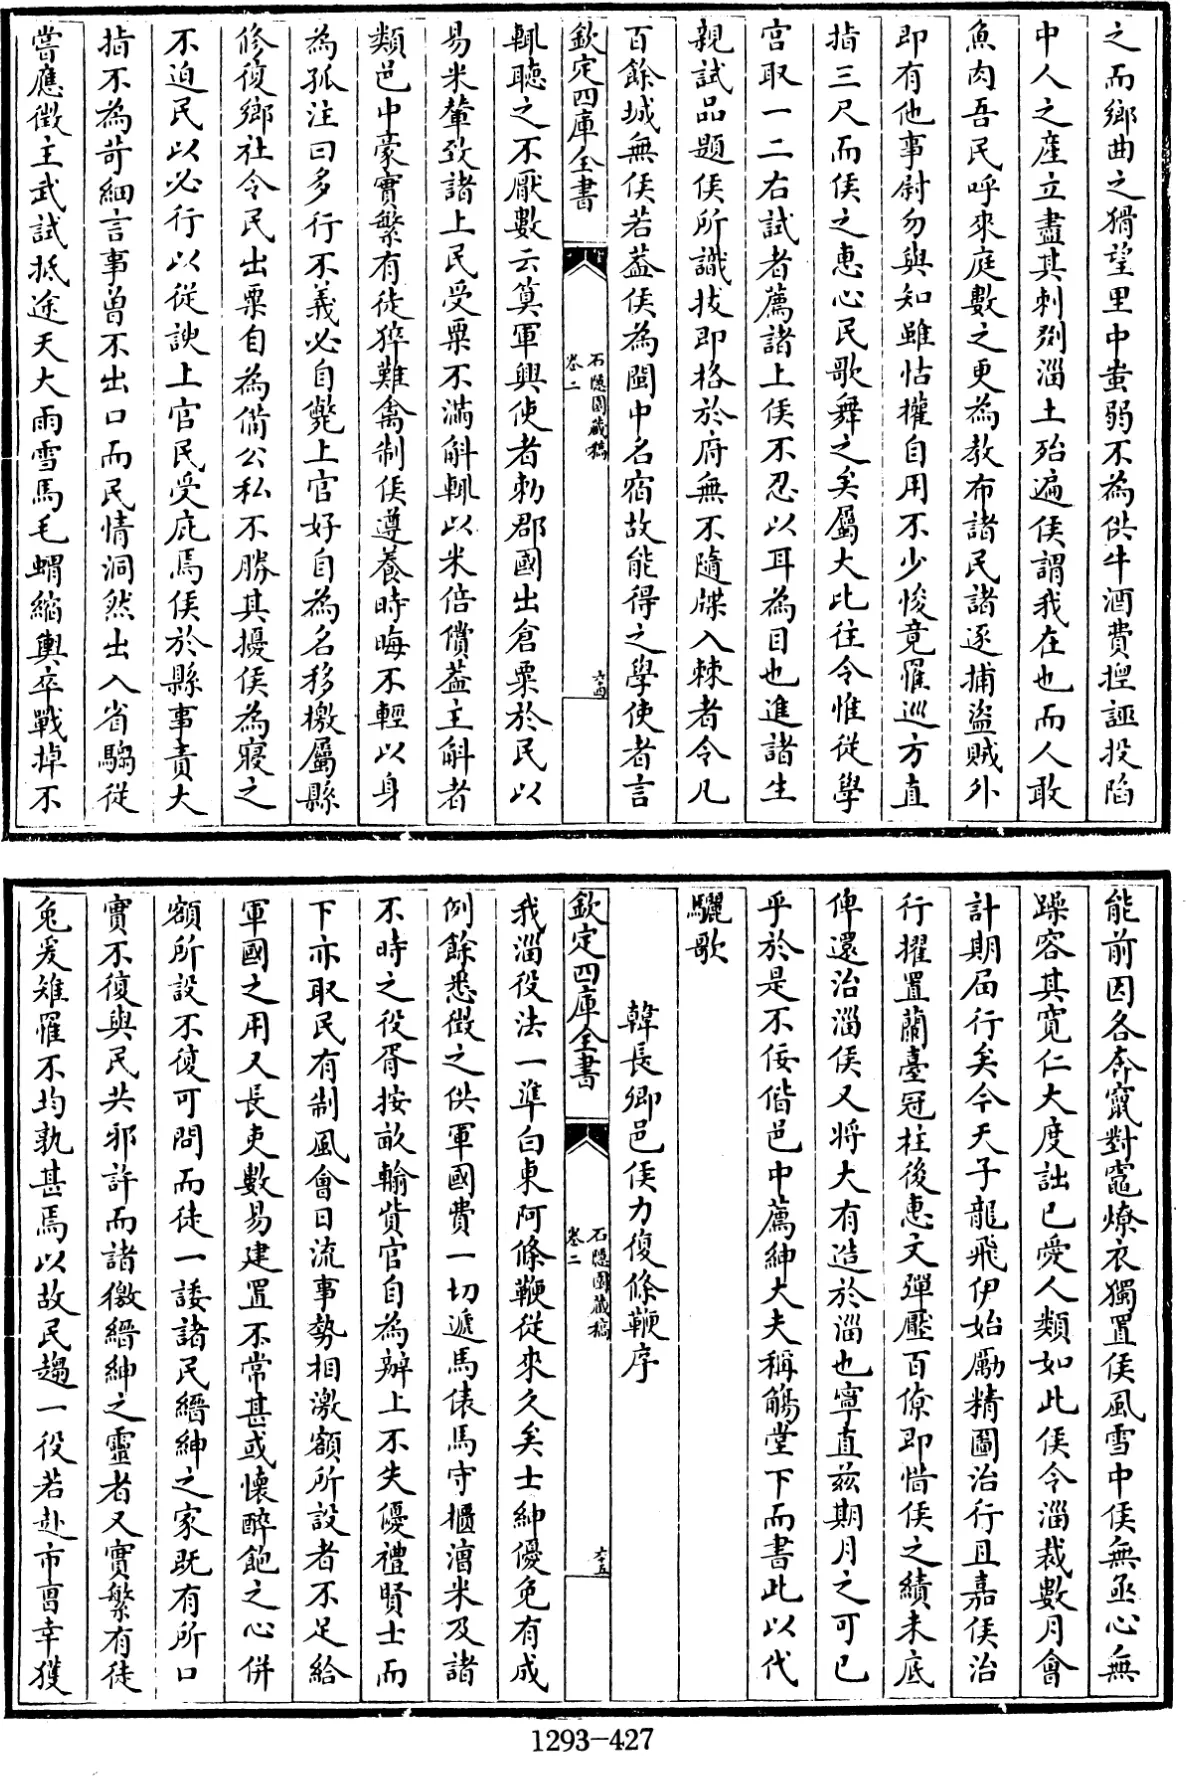 之而鄉曲之猾望里中蚩弱不為供牛酒費揑誣投陷
中人之產立盡其刺剟淄土殆遍侯謂我在也而人敢
魚肉吾民呼來庭數之更為教布諸民諸逐捕盜賊外
即有他事尉勿與知雖怙權自用不少悛竟罹巡方直
指三尺而侯之惠心民歌舞之矣屬大比往令惟從學
宫取一二右試者薦諸上侯不忍以耳為目也進諸生
親試品題侯所識拔即格於府無不隨牒入棘者令凡
百餘城無侯若葢侯為閩中名宿故能得之學使者言
欽定四庫全書
石隱園藏稿
卷二
六四
輒聽之不厭數云筭軍興使者勅郡國出倉粟於民以
易米輦致諸上民受粟不滿斛輒以米倍償葢主斛者
類邑中豪實繁有徒猝難禽制侯遵養時晦不輕以身
為孤注曰多行不義必自斃上官好自為名移檄屬縣
修復鄉社令民出粟自為備公私不勝其擾侯為寢之
不迫民以必行以從諛上官民受庇焉侯於縣事責大
指不為苛細言事曽不出口而民情洞然出入省騶從
嘗應徵主武試抵途天大雨雪馬毛蝟縮輿卒戰掉不
能前因各奔竄對竈燎衣獨置侯風雪中侯無亟心無
躁容其寛仁大度詘已愛人類如此侯令淄裁數月會
計期届行矣今天子龍飛伊始勵精圖治行且嘉侯治
行擢置蘭臺冠柱後惠文彈壓百僚即惜侯之績未底
俾還治淄侯又將大有造於淄也寧直兹期月之可已
乎於是不佞偕邑中薦紳大夫稱觴堂下而書此以代
驪歌
韓長卿邑侯力復條鞭序
欽定四庫全書
石隱園藏稿
卷二
六五
我淄役法一準白東阿條鞭從來久矣士紳優免有成
例餘悉徵之供軍國費一切遞馬俵馬守櫃漕米及諸
不時之役胥按畝輸貲官自為辦上不失優禮賢士而
下亦取民有制風會日流事勢相激額所設者不足給
軍國之用又長吏數易建置不常甚或懷醉飽之心併
額所設不復可問而徒一諉諸民縉紳之家既有所口
實不復與民共邪許而諸徼縉紳之靈者又實繁有徒
兔爰雉罹不均孰甚焉以故民趨一役若赴市曹幸獲
1293-427